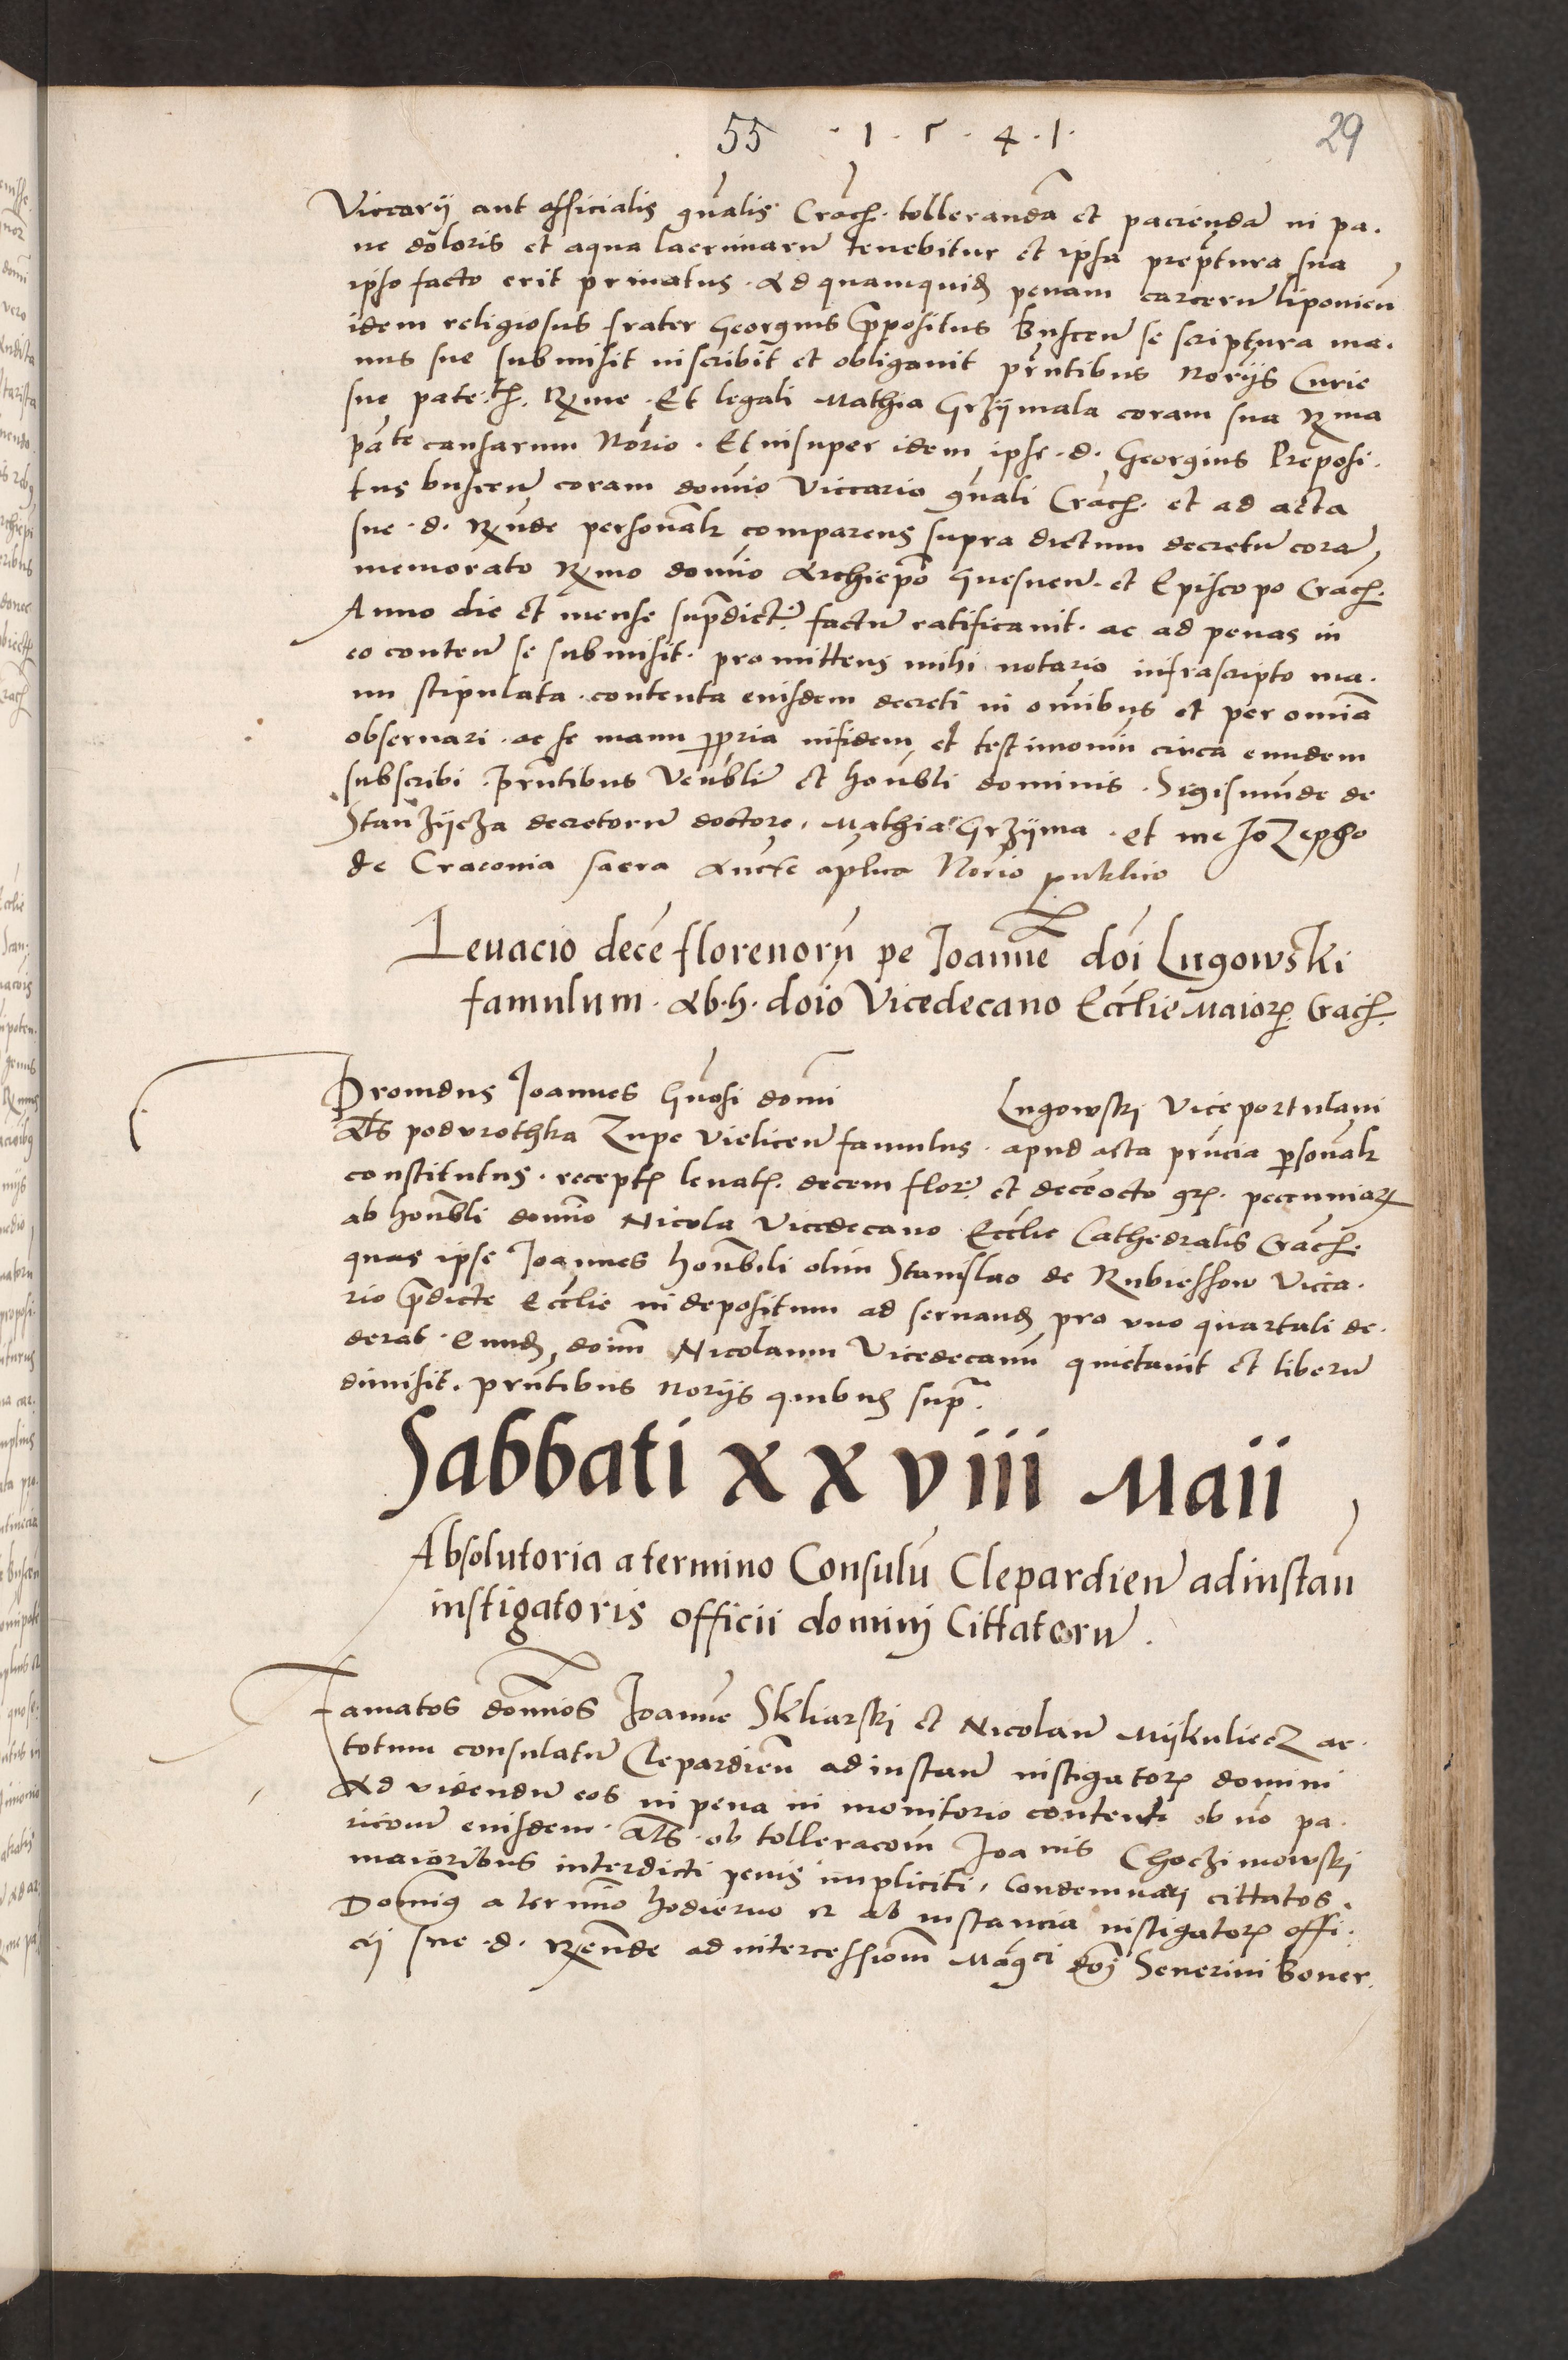 55 · 1 · 5 · 4 · 1 · 29
Viccarij aut officialis gnālis Crach. tollerandā et pacienda in pa.
ne doloris et aqua lacrimarū tenebitur et ipsa prepītura sua
ipso facto erit privatus. Ad quamquid penam carcerū
idem religiosus frater Georgius ppositus Buscen se scriptura ma.
nus sue submisit inscribit et obligavit pntibus Norijs Curie
sue pate: Rme. Et legali Mathia Grzÿmala coram sua Rma
pate causarum Norio. Et insuper idem ipse .d. Georgius Preposi.
tus buscen coram domīo Viccario gnāli Crach. et ad acta
sue .d. Rnde personalr comparens supra dictum decretū corā
memorato Rmo domīo Archiepō Gnesnen. et Episcopo Crach.
Anno die et mense supradict. factū ratificavit. ac ad penas in
eo conten se submisit. promittens mihi notario infrascripto ma.
nu stipulata. contenta eiusdem decreti in omībus et per omiā
observari. ac se manu ppria infidem et testimoniū circa eundem
subscribi. Pntibus Venbli et honbli dominis. Sigismundo de
Stanzÿcza decretorū doctore, Mathia Grzÿma. et me Jozepho
de Craconia sacra Aucte aplica Norio publico
Levacio decē florenorū pe Joannē doī Lugowski
famulum. Ab. h. doīo Vicedecano Ecclie Maiorꝫ Crach.
Providus Joannes Gnosi domi Lugowski Viceportulani
Als podvrothka Zupe Vielicen famulus. apud acta pnцia psonalr
constitutus. receptꝫ levatꝫ decem flor. et decēocto grꝫ. pecuniarꝫ
ab honbli domīo Nicola Vicedecano Ecclie Cathedralis Crach.
quas ipse Joannes honbili olim Stanislao de Rubiesshow Vicca.
rio pdicte Ecclie in depositum ad servandꝫ pro uno quartali de.
derat. Eundꝫ doim Nicolaum Vicedecanū quietavit et liberū
dimisit. pntibus norijs quibus supra.
Sabbati xxviii Maii
Absolutoria a termino Consulū Clepardien ad instan
instigatoris officii dominj Cittatorū.
Famatos domīos Joannē Skliarski et Nicolaū Mÿkuliecz ac.
totum consulatū Clepardien ad instanc instigatorꝫ domini
Ad videndū eos in pena in monitorio content ob nō pa.
ricionē eiusdem. als. ob tolleracōm Joanis Choczimowski
maioribus interdicti penis impliciti, Condemnari cittatos.
Domig a termino hodierno et ab instancia instigatorꝫ offi.
cij sue .d. Rende ad intercessionm Magci doī Severini Boner.